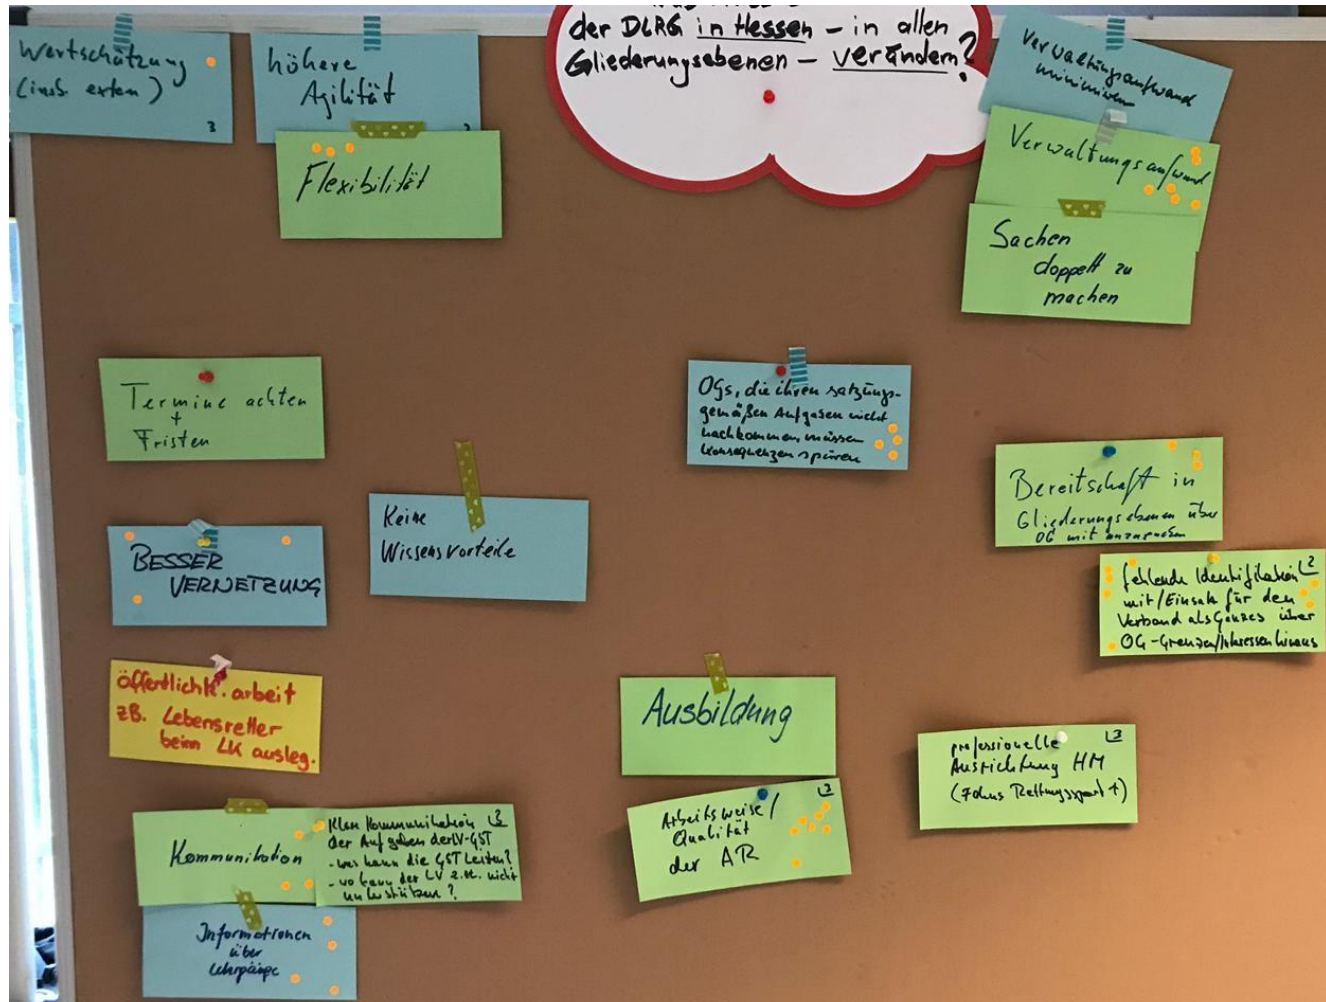 der DLRG in Hessen – in allen
Gliederungsebenen – verändern?
Wertschätzung
(insb. extern)
3
höhere
Agilität
Flexibilität
Verwaltungsaufwand
minimieren
Verwaltungsaufwand
Sachen
doppelt zu
machen
Termine achten
+
Fristen
OGs, die ihren satzungs-
gemäßen Aufgaben nicht
nachkommen müssen
Konsequenzen spüren
Keine
Wissensvorteile
Bereitschaft in
Gliederungsebenen über
OG mit anzupacken
BESSER
VERNETZUNG
fehlende Identifikation
mit/Einsatz für den
Verband als Ganzes über
OG-Grenzen/Interessen hinaus
öffentlichk. arbeit
zB. Lebensretter
beim LK ausleg.
Ausbildung
professionelle
Ausrichtung HM
(Fokus Rettungssport ↑)
Arbeitsweise/
Qualität
der AR
Kommunikation
Klare Kommunikation
der Aufgaben der LV-GST
- was kann die GST Leisten?
- wo kann der LV z.Zt. nicht
unterstützen?
Informationen
über
Lehrgänge